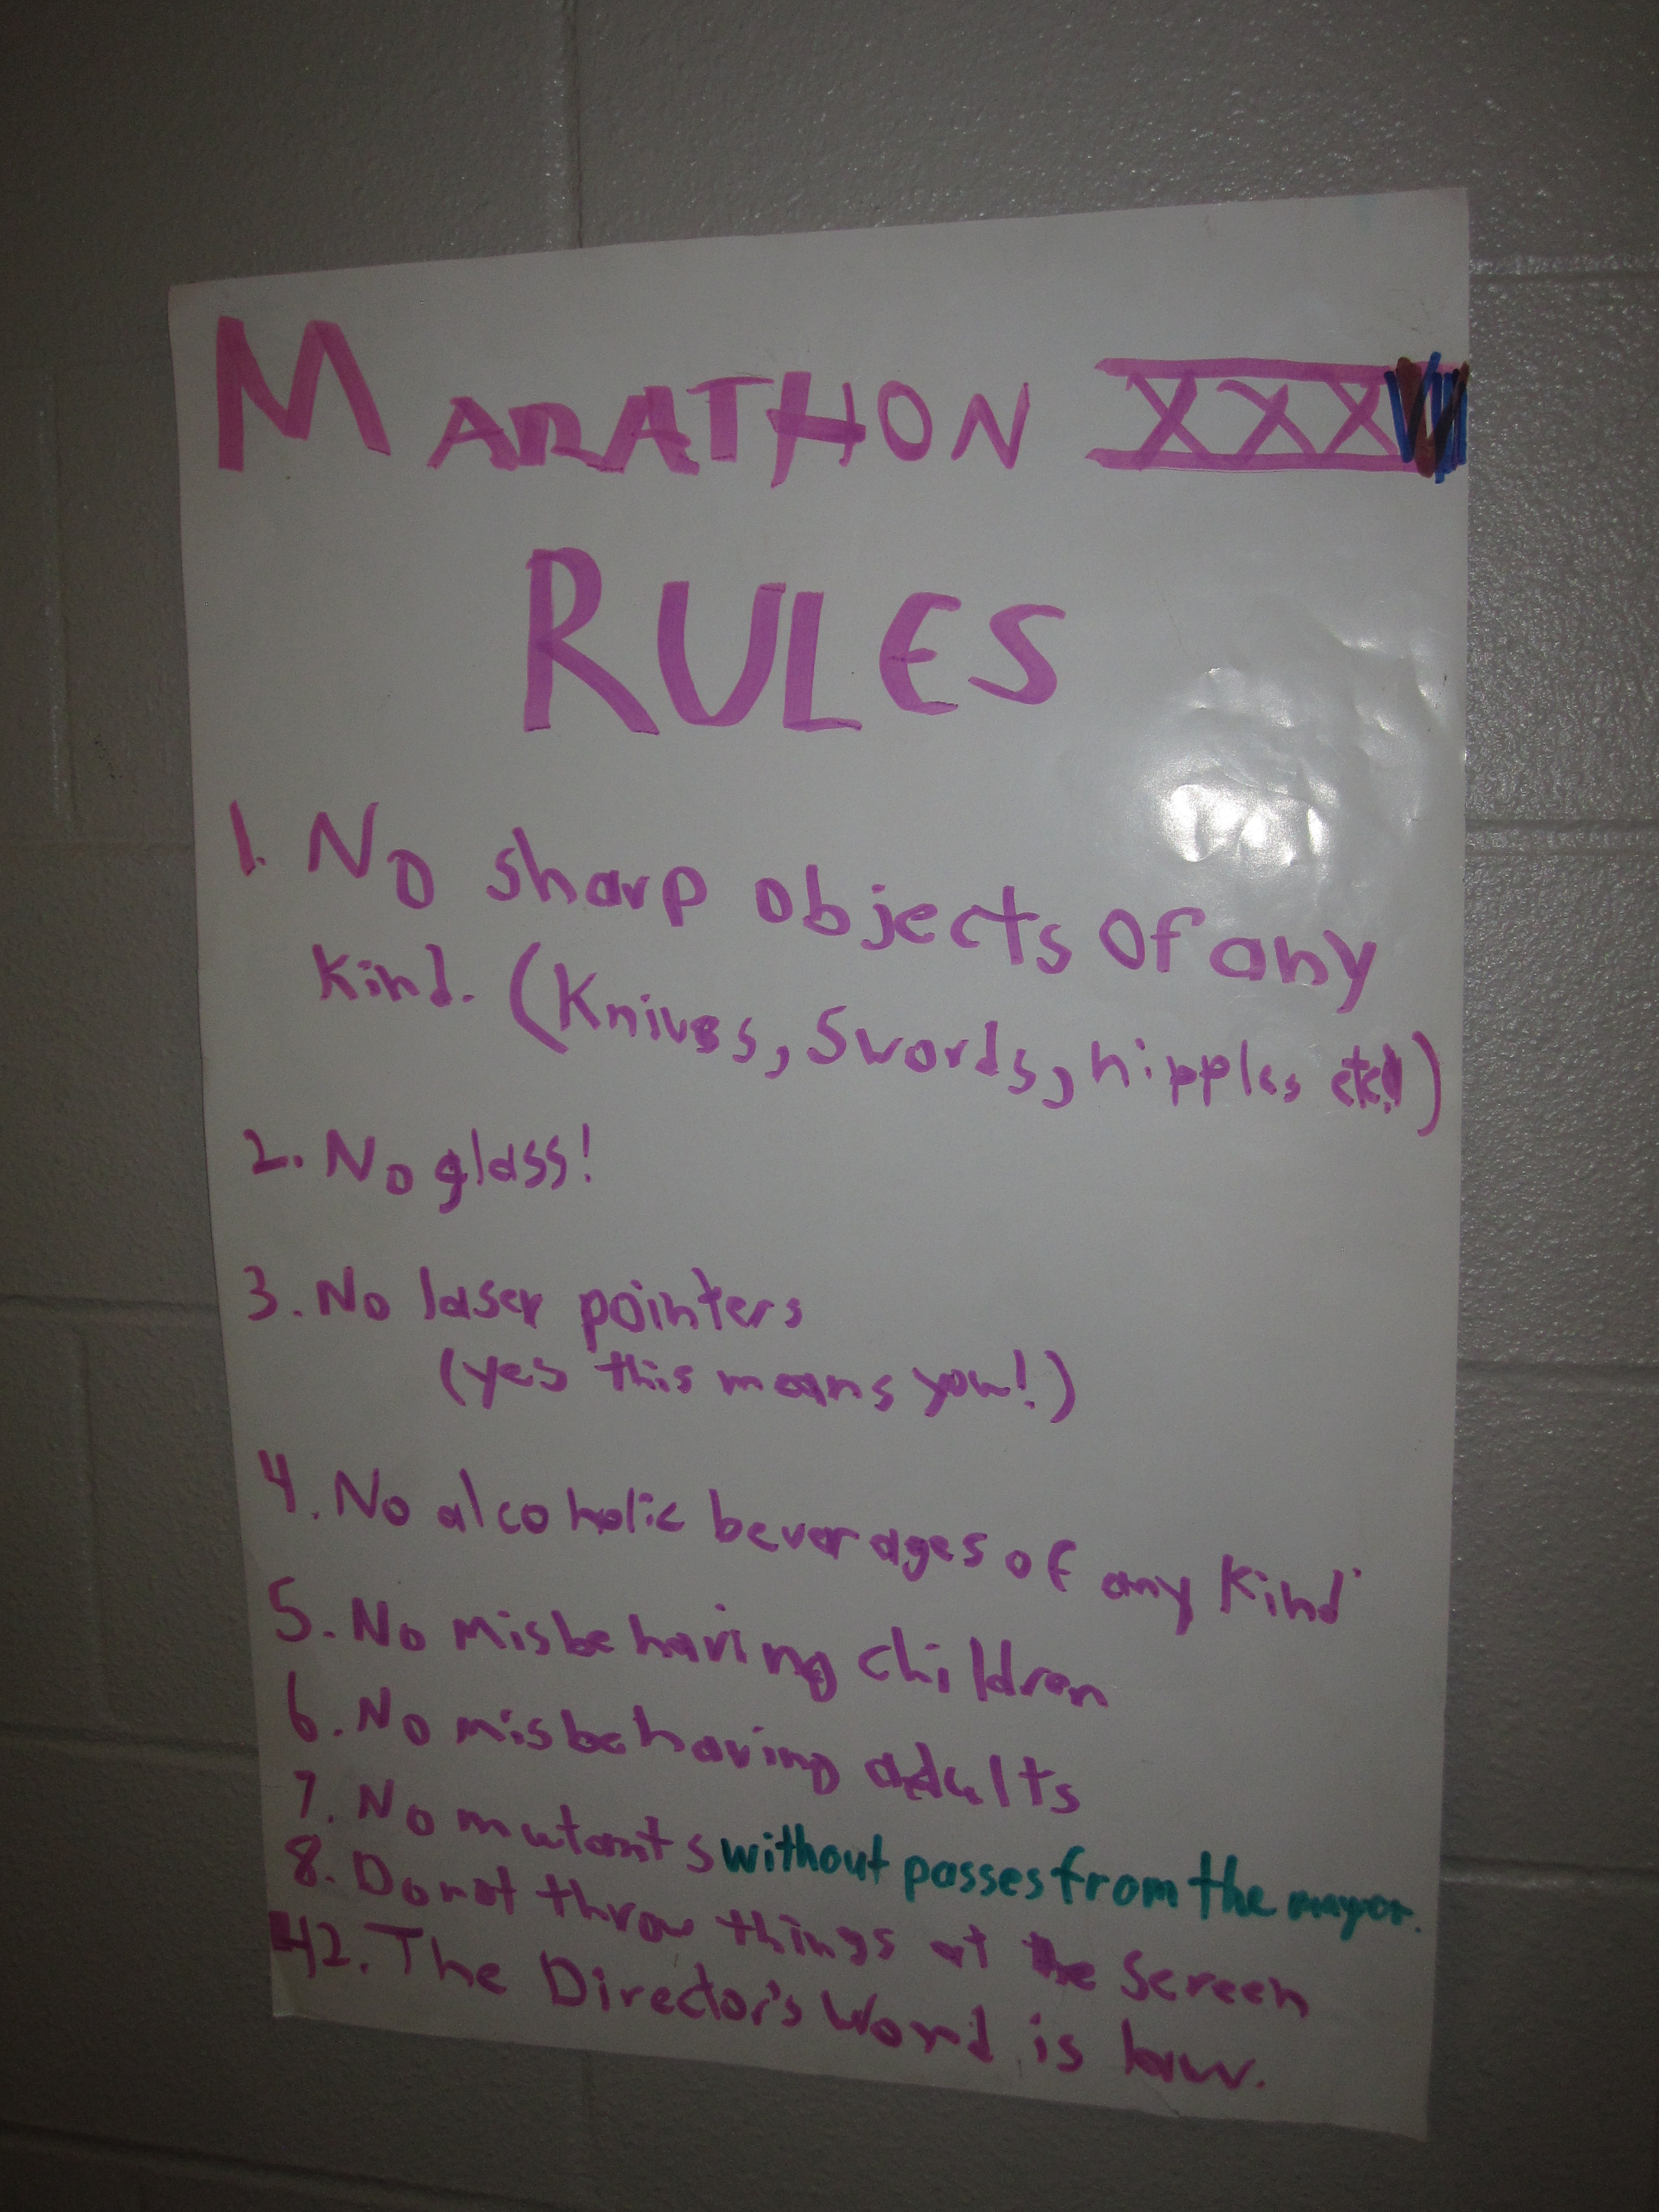 MARATHON XXX
RULES
1. No sharp objects of any
kind. (Knives, Swords, nipples etc!)
2. No glass!
3. No laser pointers
(yes this means you!)
4. No alcoholic beverages of any kind
5. No misbehaving children
6. No misbehaving adults
7. No mutants without passes from the mayor.
8. Do not throw things at the Screen
42. The Director's Word is law.